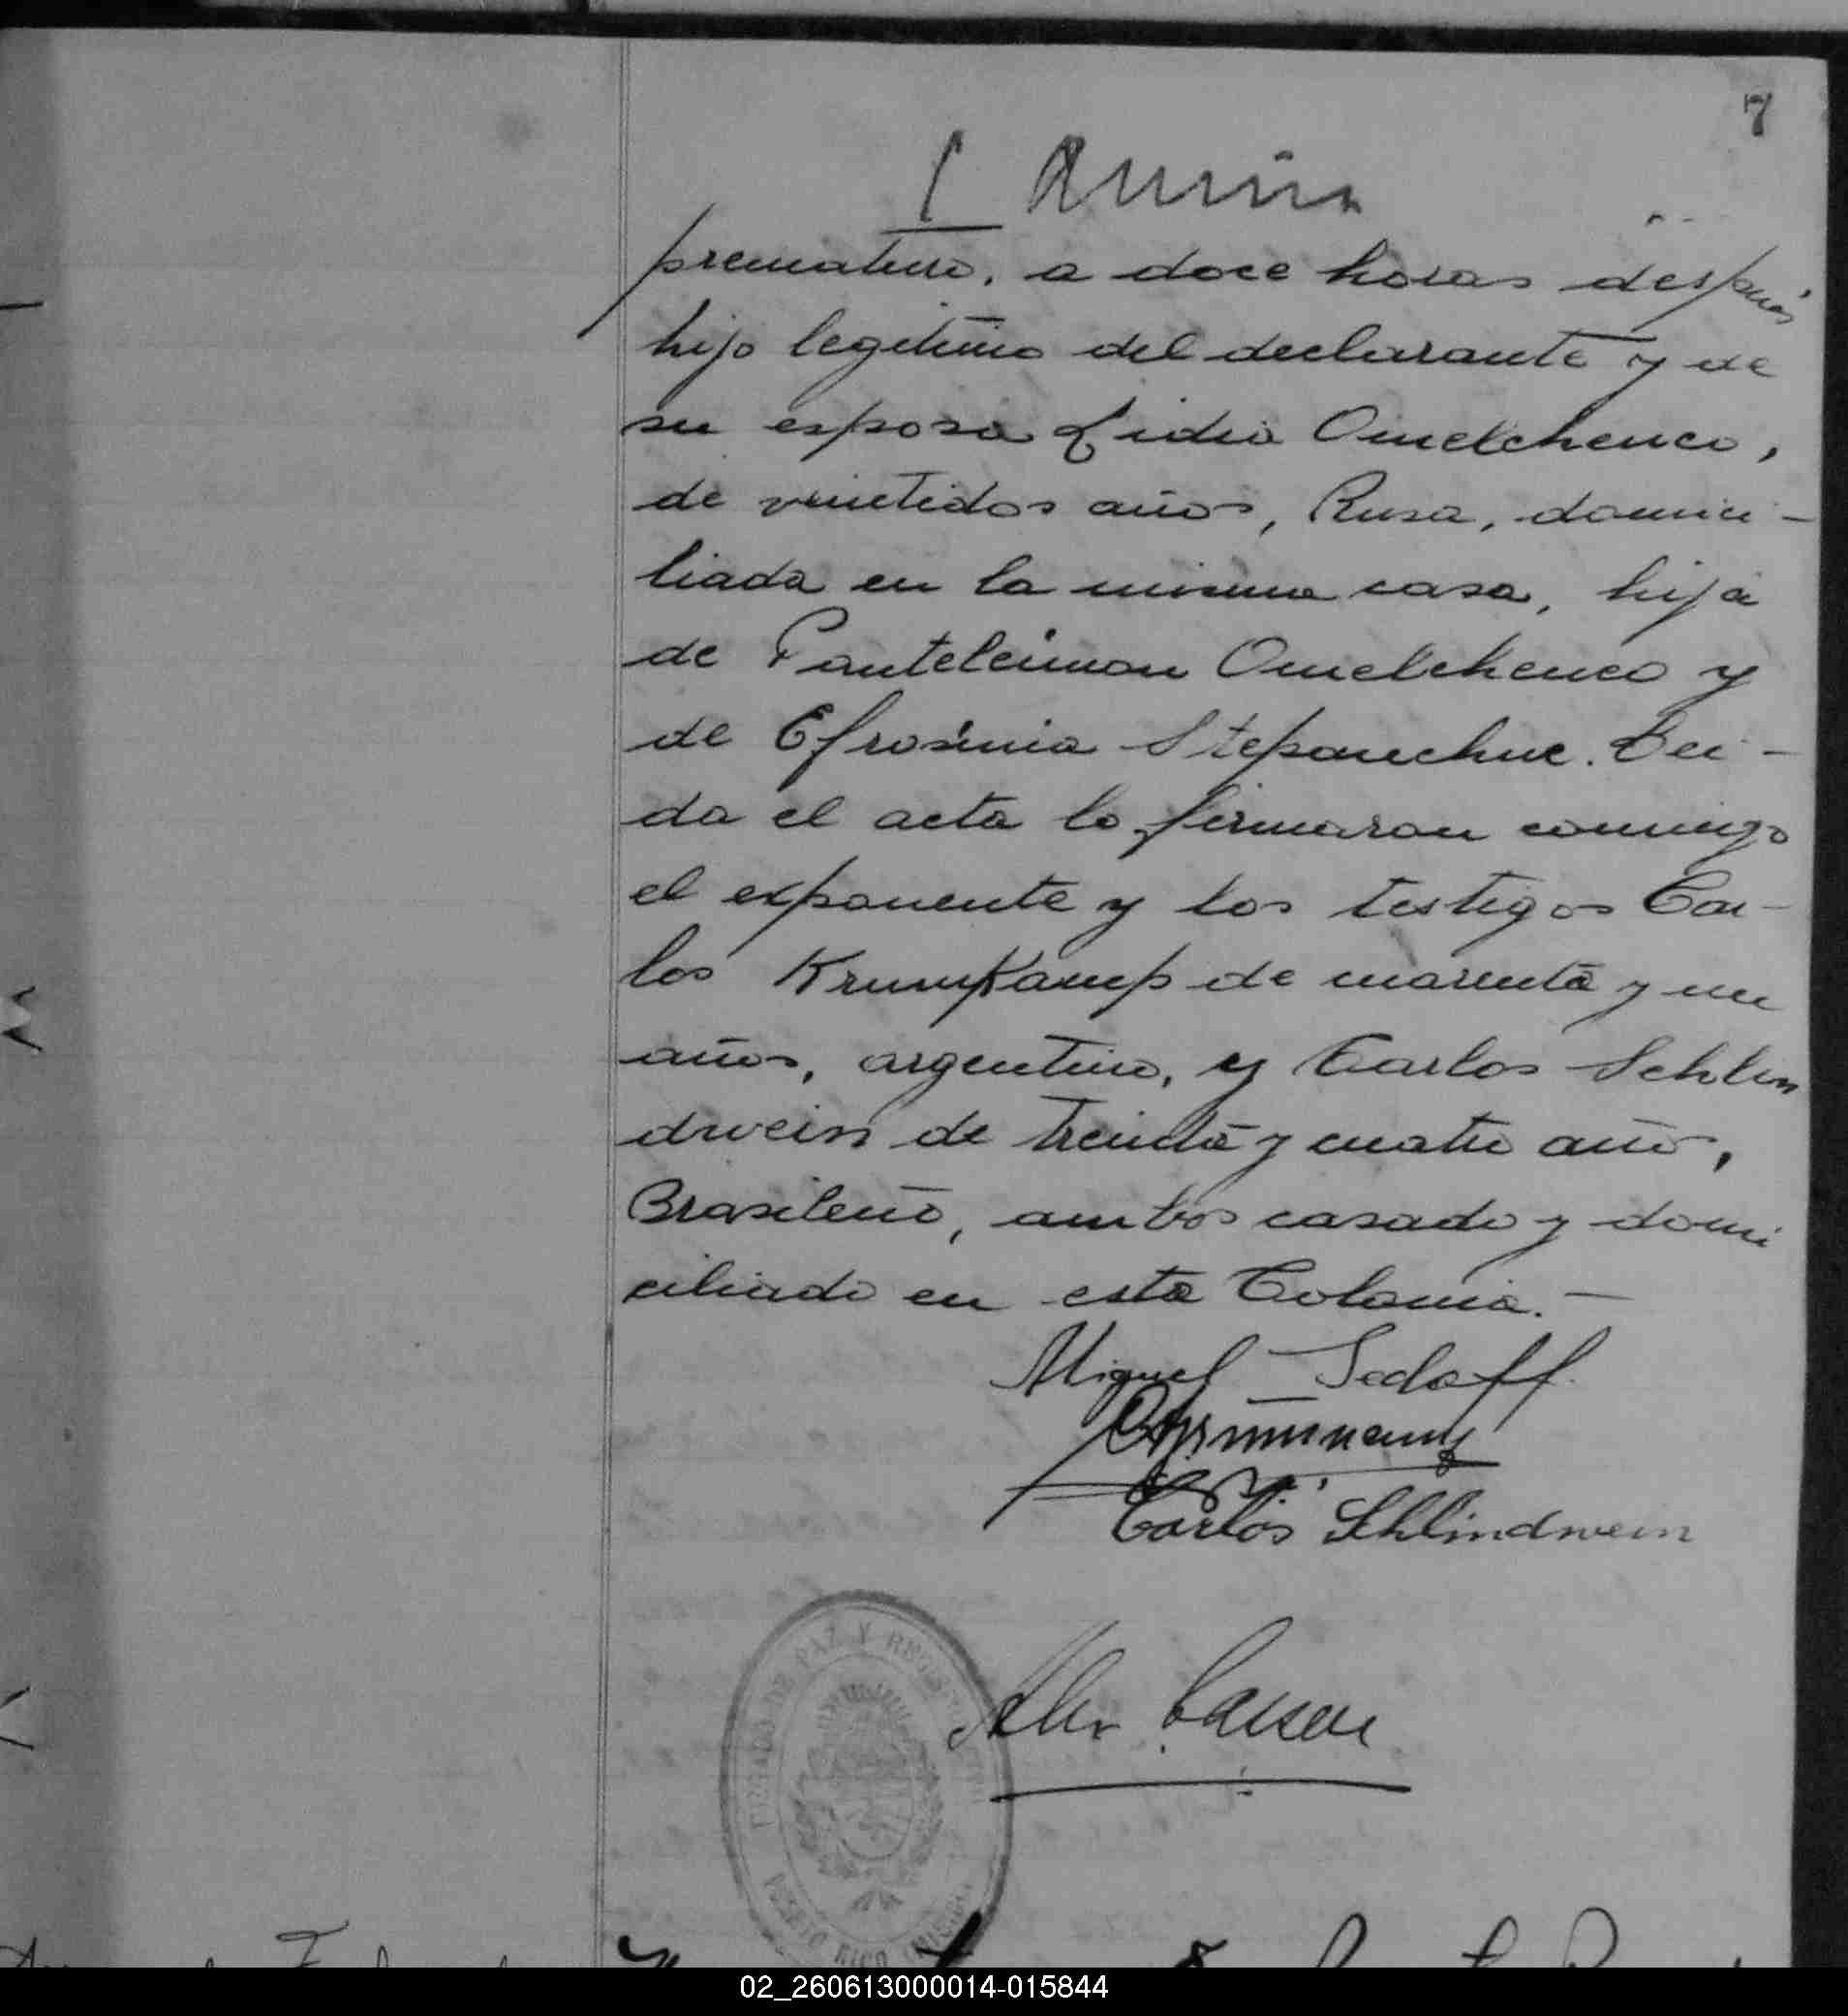 7
prematuro, a doce horas después
hijo legitimo del declarante y de
su esposa Lidia Omelchenco,
de veintidos años, Rusa, domici-
liada en la misma casa, hija
de Panteleimon Omelchenco y
de Efrosinia Stepanchuc. Lei-
da el acta lo firmaron conmigo
el exponente y los testigos Car-
los Krumkamp de cuarenta y un
años, argentino, y Carlos Schlin
dwein de treinta y cuatro años,
Brasileño, ambos casado y domi
ciliado en esta Colonia.-
Miguel Sedoff.
Carlos Schlindwein
JUZGADO DE PAZ Y REGISTRO CIVIL
PUERTO RICO (MISIONES)
02_260613000014-015844